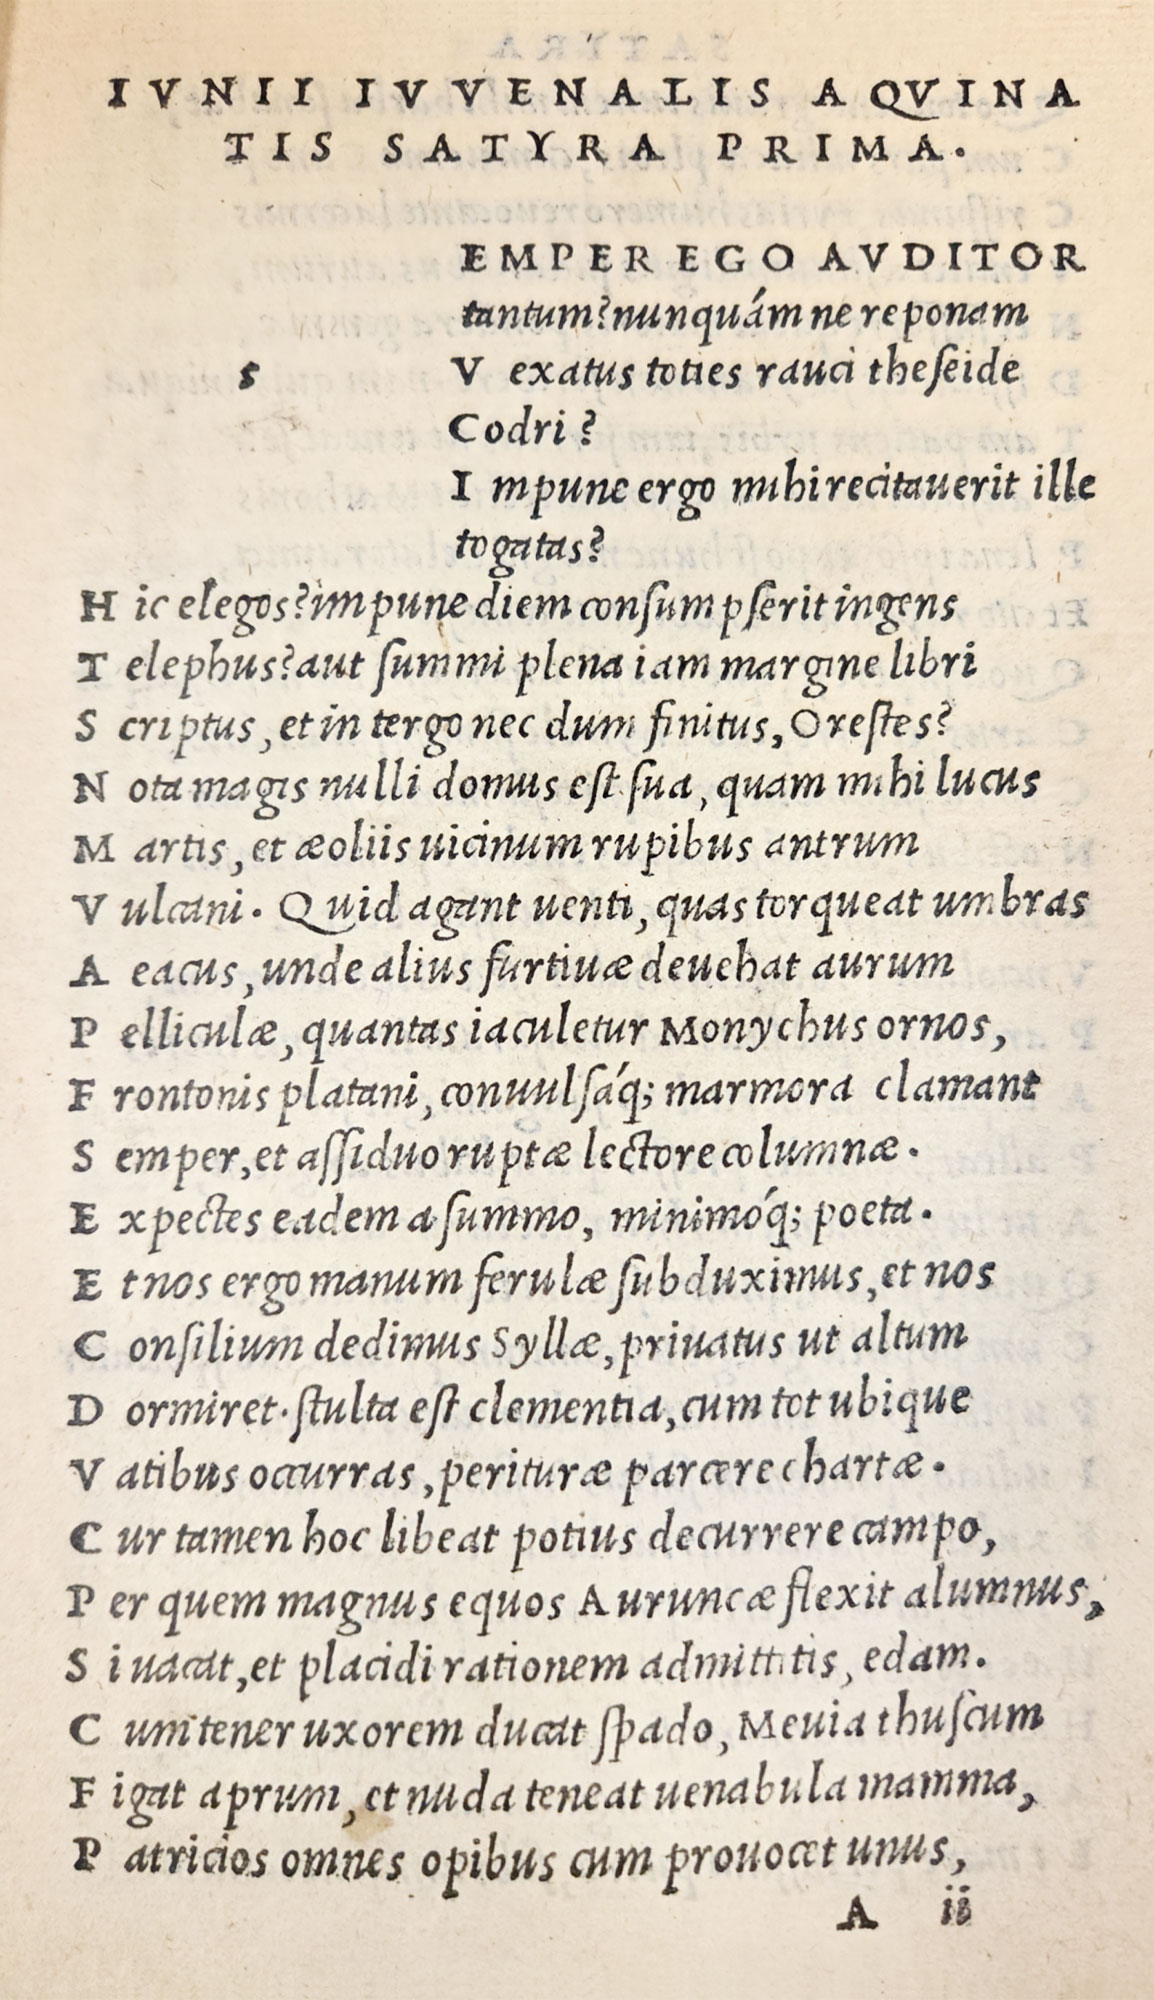 IVNII IVVENALIS AQVINA
TIS SATYRA PRIMA.
EMPER EGO AVDITOR
tantum? nunquám ne reponam
s V exatus toties rauci theseide
Codri?
I mpune ergo mihi recitauerit ille
togatas?
H ic elegos? impune diem consumpserit ingens
T elephus? aut summi plena iam margine libri
S criptus, et in tergo nec dum finitus, Orestes?
N ota magis nulli domus est sua, quam mihi lucus
M artis, et æoliis uicinum rupibus antrum
V ulcani. Quid agant uenti, quas torqueat umbras
A eacus, unde alius furtiuæ deuehat aurum
P elliculæ, quantas iaculetur Monychus ornos,
F rontonis platani, conuulsáq; marmora clamant
S emper, et assiduo ruptæ lectore columnæ.
E xpectes eadem a summo, minimóq; poeta.
E t nos ergo manum ferulæ subduximus, et nos
C onsilium dedimus Syllæ, priuatus ut altum
D ormiret. stulta est clementia, cum tot ubique
V atibus occurras, perituræ parcere chartæ.
C ur tamen hoc libeat potius decurrere campo,
P er quem magnus equos Auruncæ flexit alumnus,
S i uacat, et placidi rationem admittitis, edam.
C um tener uxorem ducat spado, Meuia thuscum
F igat aprum, et nuda teneat uenabula mamma,
P atricios omnes opibus cum prouocet unus,
A ii